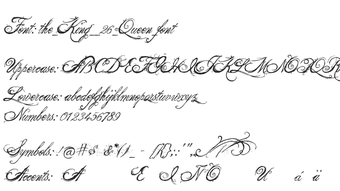 Font: the_King__26_Queen_font
Uppercase: ABCDEFGHIJKLMNOPQR
Lowercase: abcdefghijklmnopqrstuvwxyz
Numbers: 0123456789
Symbols: !@#$ &*() _ -
Accents: A E I N O U á ä